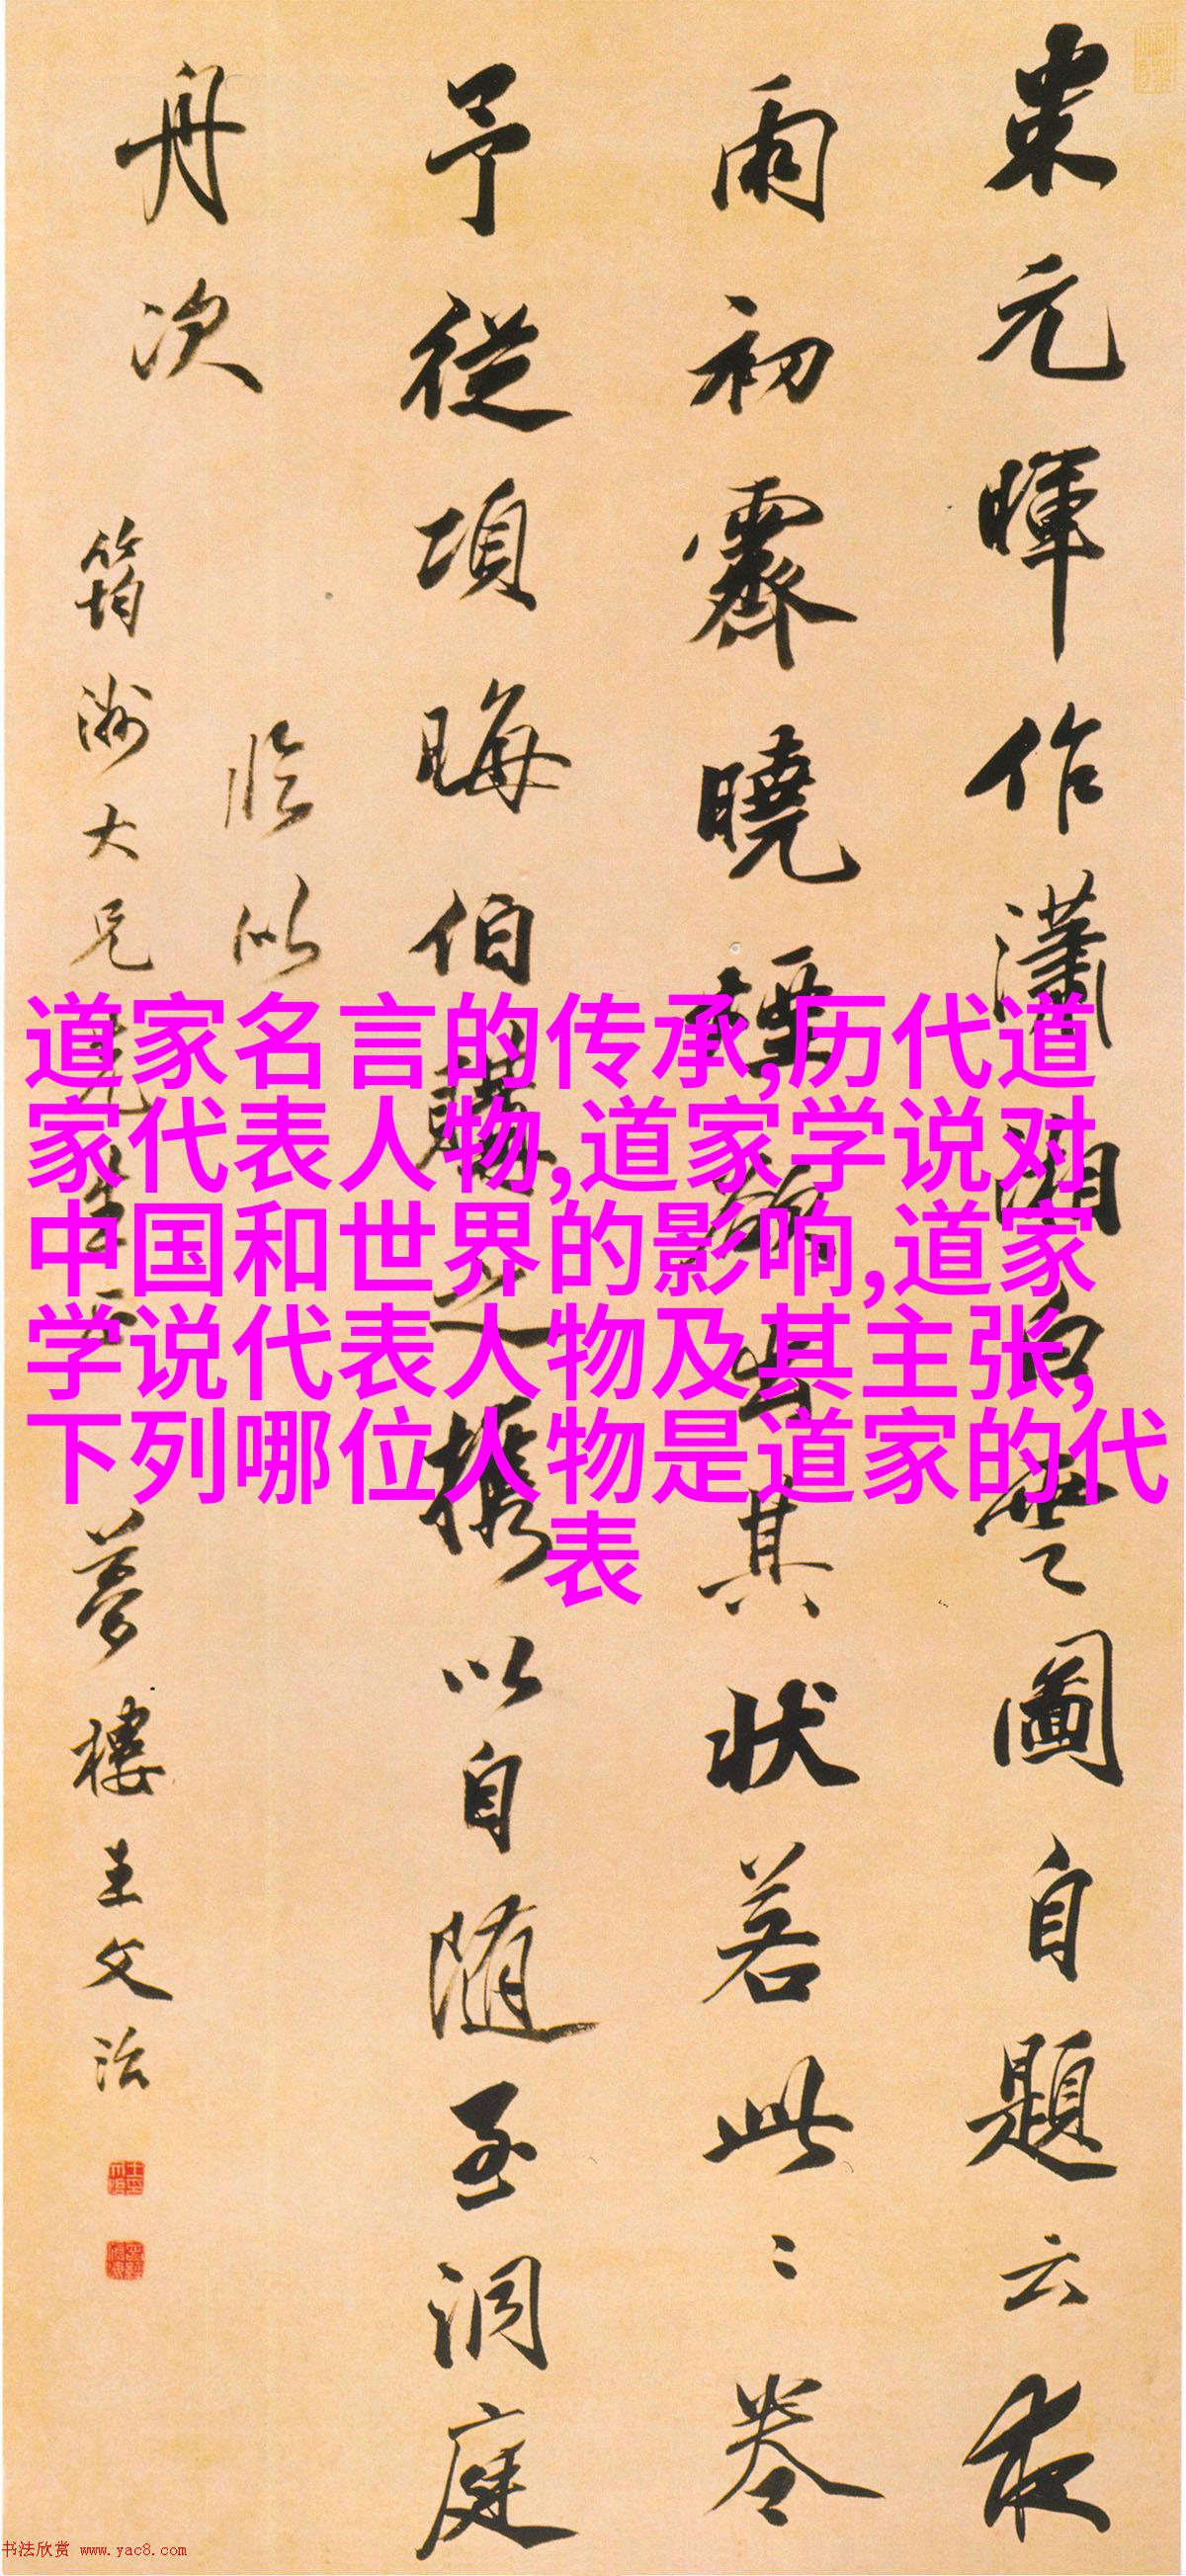 米元暉作瀟湘白雲圖自題云夜
雨初霽曉煙欲出其状若此〻卷
予從項晦伯購之携以自随至洞庭
舟次
臨似
筠洲大兄
夢樓王文治
道家名言的传承,历代道
家代表人物,道家学说对
中国和世界的影响,道家
学说代表人物及其主张,
下列哪位人物是道家的代
表
书法欣赏 www.yac8.com